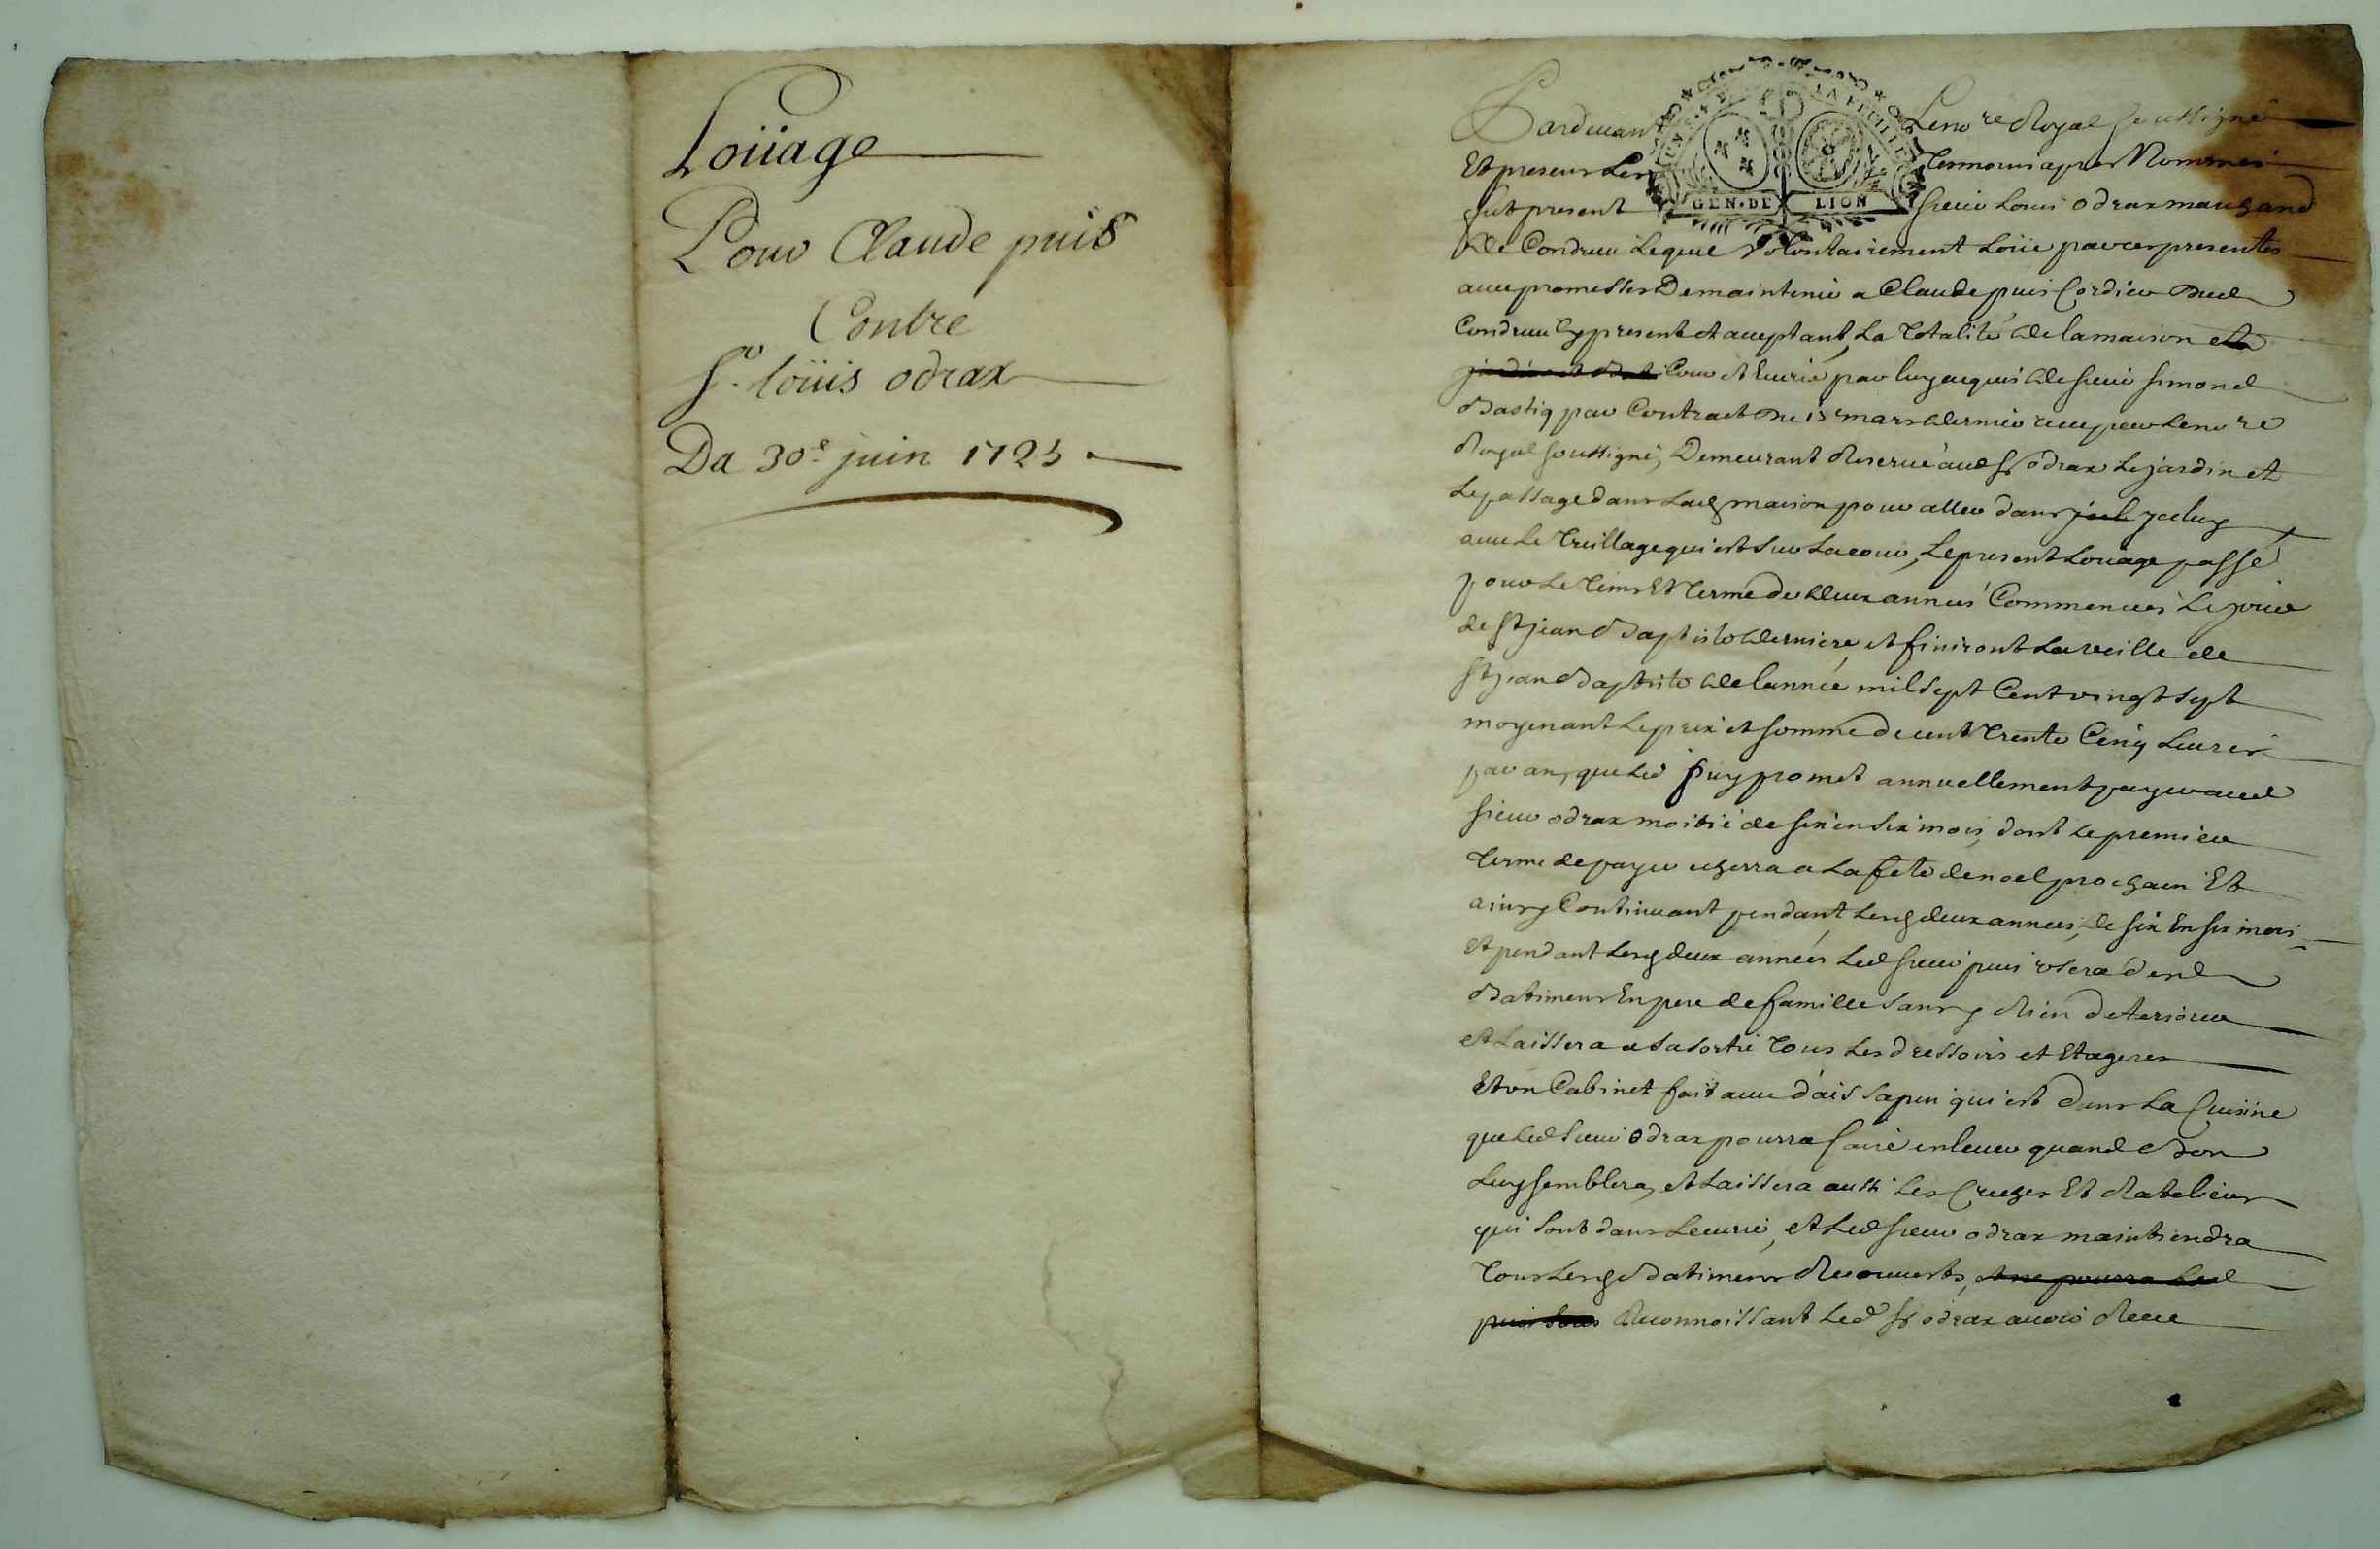 Loüage
Pour Claude puis
Contre
Sr. loüis odrax
Du 30e juin 1725
Pardevant Le no re Royal soussigné
Et presens Les Tesmoins apres Nommés
GEN·DE LION
fut present sieur Louis odrax marchand
de Condrieu Lequel volontairement Loüe par ces presentes
avec promesses De maintenir a Claude puis Cordier dud
Condrieu Cy present et acceptant, La Totalité de la maison et
jardin et Cour et Ecurie par luy acquis de sieur simond
Bastiq par Contract du 13e mars dernier receu par Le no re
Royal soussigné, Demeurant Reservé aud Sr odrax Le jardin et
Le passage dans Lad maison pour aller dans yceluy
avec Le Treillage qui est sur La cour, Le present Loüage passé
pour Le Tems Et Terme de deux années Commencées Le jour
de St jean Baptiste derniere, et finiront La veille de
St jean Baptiste de l'année mil sept Cent vingt sept
moyenant Le prix et somme de cent Trente Cinq Livres
par an, que Led Puy promet annuellement payer aud
sieur odrax moitié de six en six mois, dont Le premier
Terme de payer echerra a La fete de noel prochain Et
ainsy Continuant pendant Lesd deux années, de six En six mois
et pendant Lesd deux années Led sieur puis usera desd
Batimens En pere de famille sans y Rien deteriorer
et Laissera a sa sortie Tous Les dressoirs et Etageres
Et un Cabinet fait avec d'ais sapin qui est dans La Cuisine
que Led sieur odrax pourra faire enlever quand Bon
Luy semblera, et Laissera aussi Les Creches Et Rateliers
qui sont dans Lecurie, et Led sieur odrax maintiendra
Tous Lesd Batimens Recouverts, et ne pourra Led
puis sous Reconnoissant Led Sr odrax avoir Receu